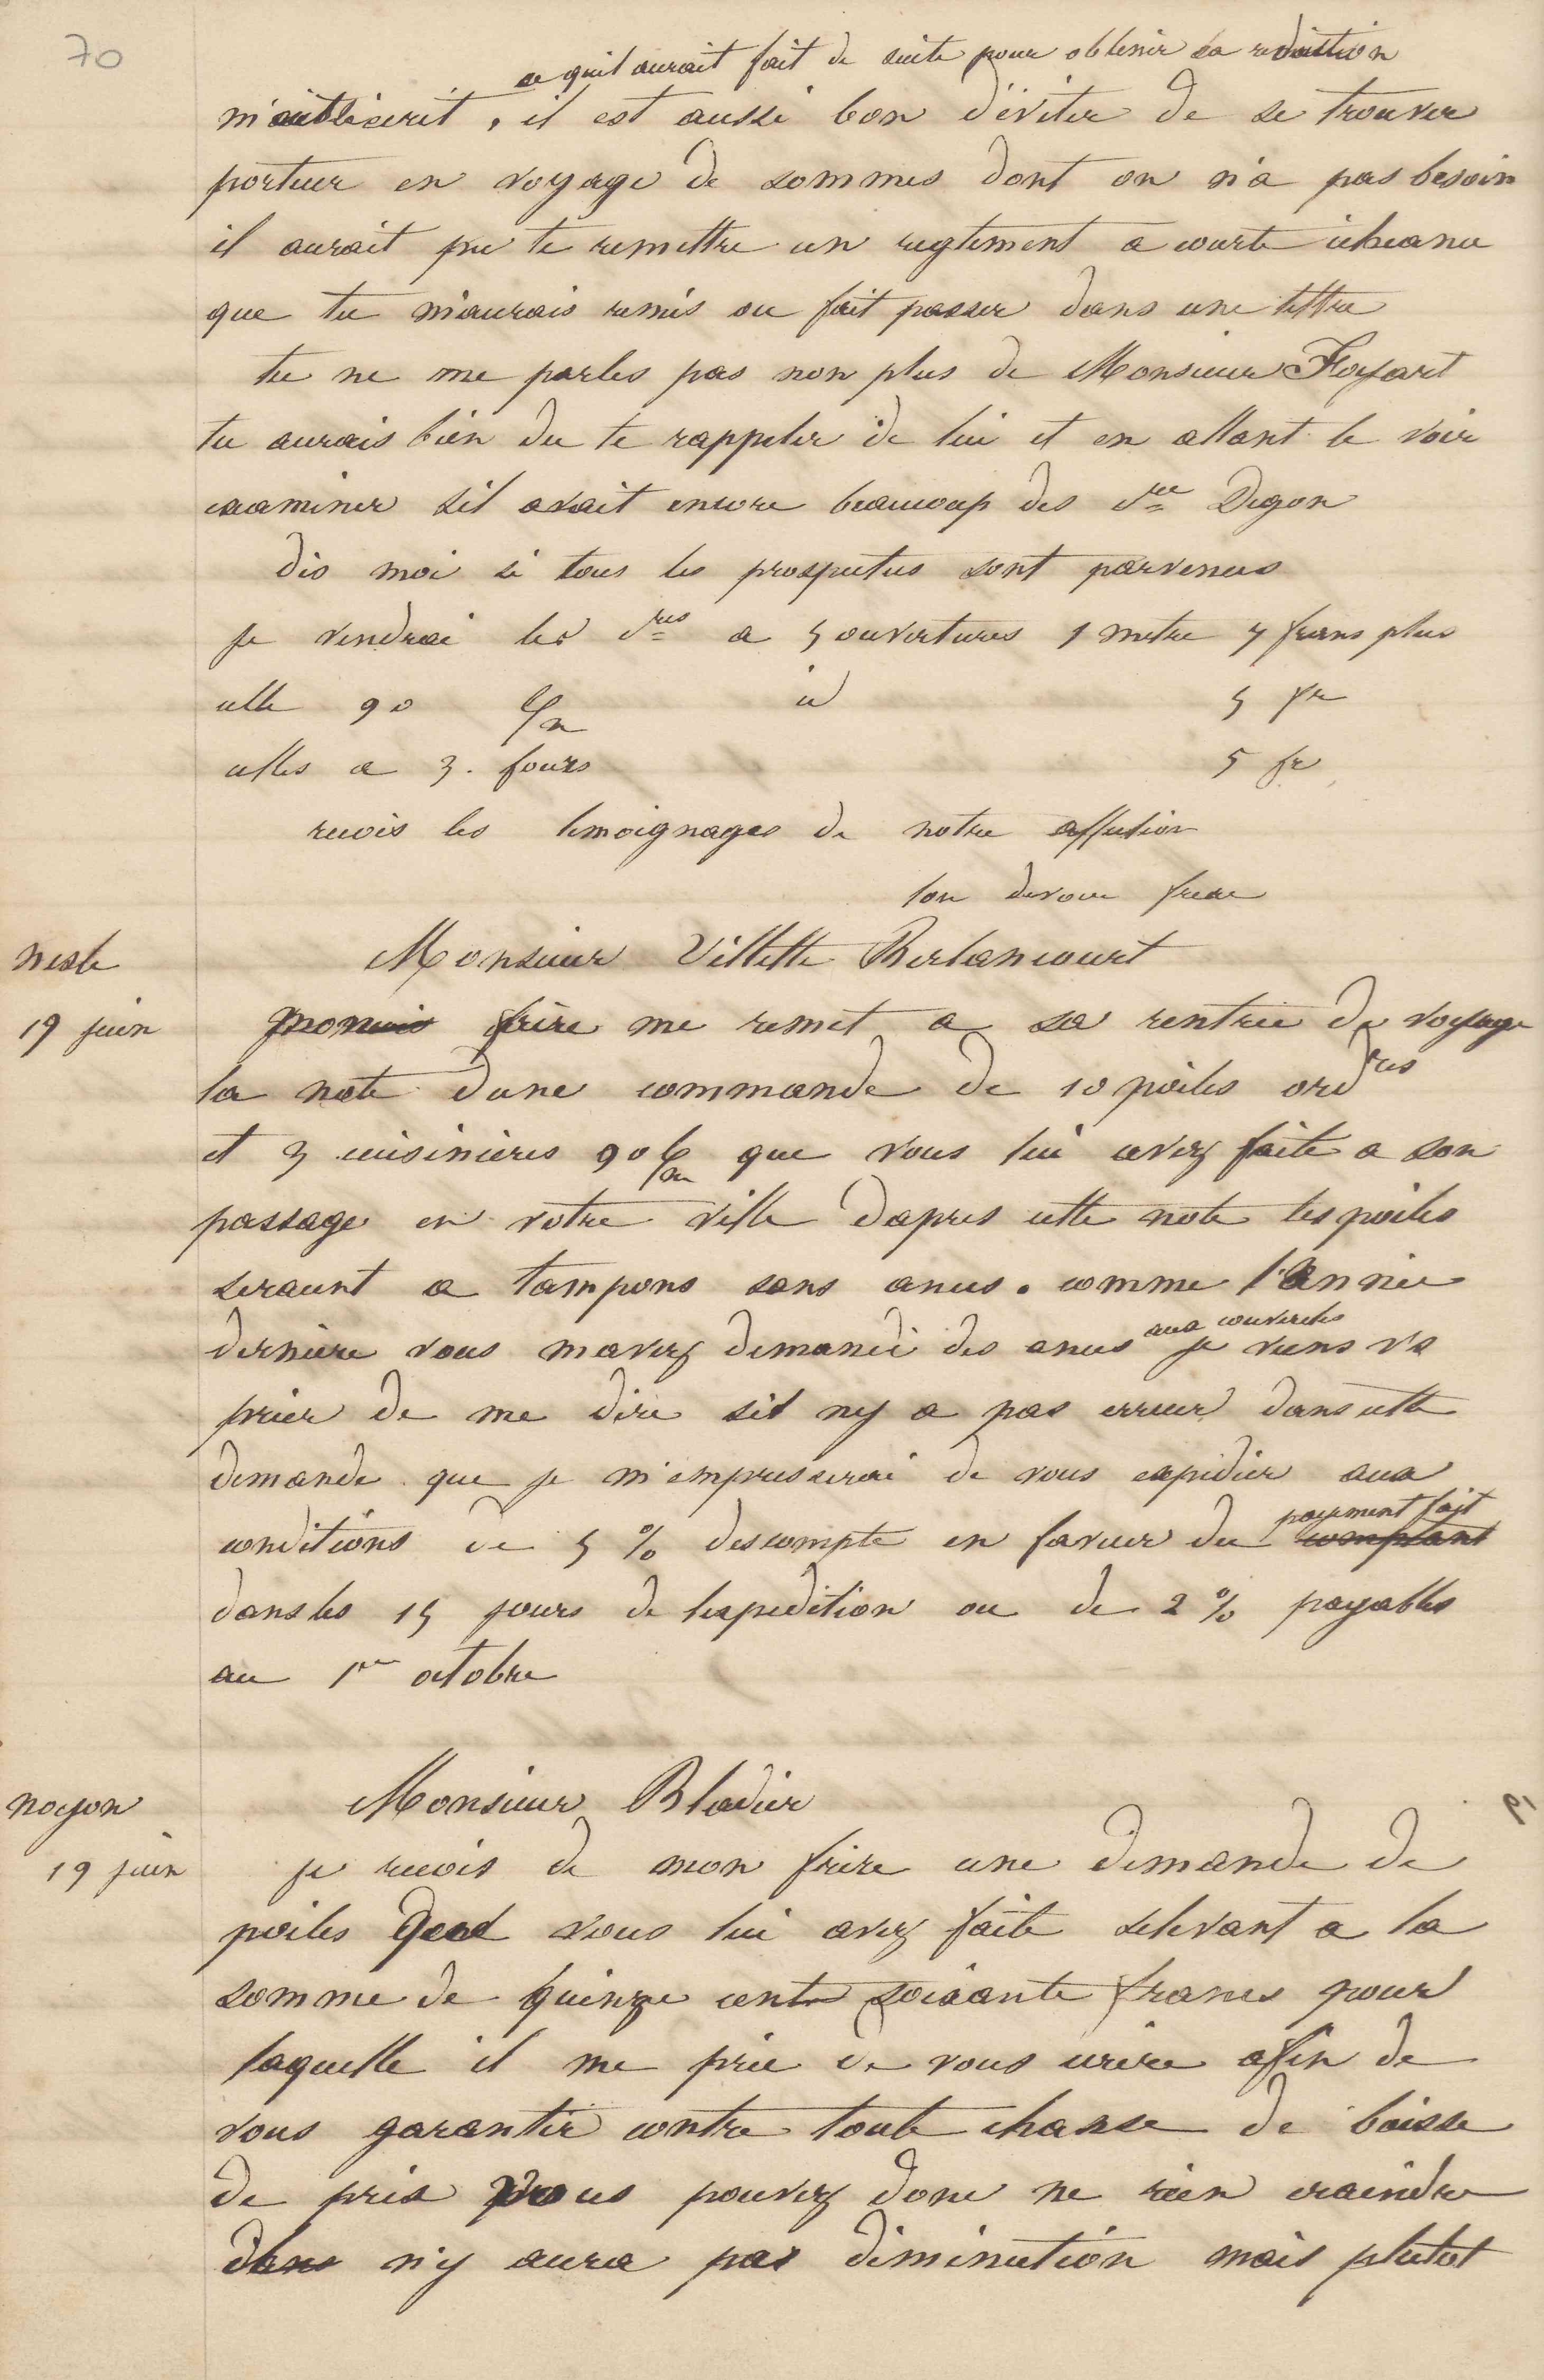 70
ce quil aurait fait de suite pour obtenir sa reduction
m'eut écrit, il est aussi bon d'éviter de se trouver
porteur en voyage de sommes dont on n'a pas besoin
il aurait pu te remettre un reglement a courte écheance
que tu m'aurais remis ou fait passer dans une lettre
tu ne me parles pas non plus de Monsieur Floyart
tu aurais bien du te rappeler de lui et en allant le voir
examiner sil avait encore beaucoup des c^res Degon
dis moi si tous les prospectus sont parvenus
je vendrai les c^res a 3 ouvertures 1 metre 5 francs plus
celle 90 c/m id 5 fr
celles a 3. fours 5 fr
recois les temoignages de notre affection
ton devoué frere
nesle
19 juin
Monsieur Villette Berlancourt
Mon frère me remet a sa rentrée de voyage
la note dune commande de 10 poiles ord^res
et 3 cuisinières 90 c/m que vous lui avez faite a son
passage en votre ville dapres cette note les poiles
seraient a tampons sans anus. comme l'année
dernière vous mavez demandé des anus aux couvercles je viens vs
prier de me dire sil ny a pas erreur dans cette
demande que je m'empresserai de vous expédier aux
conditions de 5 % descompte en faveur du comptant payement fait
dans les 15 jours de lexpedition ou de 2 % payables
au 1^er octobre
noyon
19 juin
Monsieur Bladier
je recois de mon frère une demande de
poiles que vous lui avez faite selevant a la
somme de quinze cent soixante francs pour
laquelle il me prie de vous écrire afin de
vous garantir contre toute chance de baisse
de prix vous pouvez donc ne rien craindre
n'y aura pas diminution mais plutot